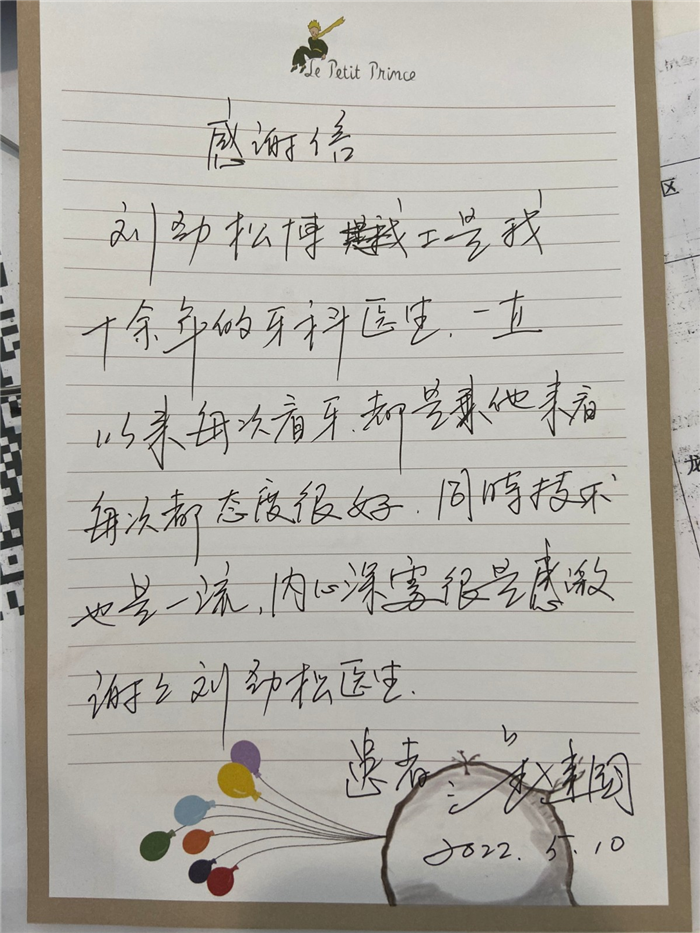 Le Petit Prince
感谢信
刘劲松博士是我
十余年的牙科医生.一直
以来每次看牙.都是来他来看
每次都态度很好.同时技术
也是一流,内心深处很是感激
谢谢刘劲松医生.
患者:
2022.5.10
区
龙